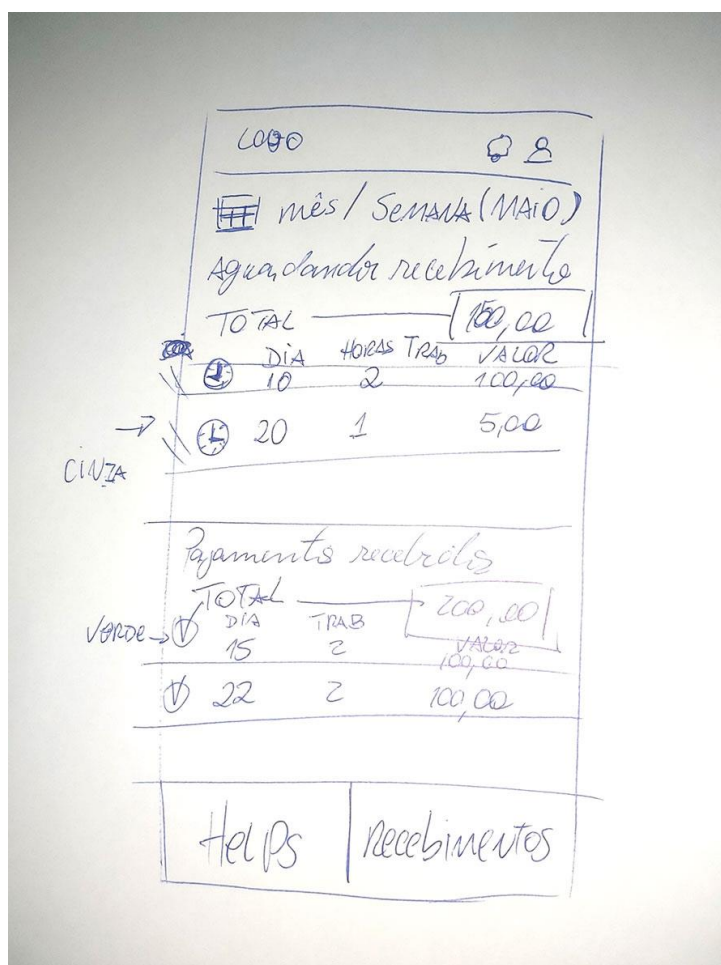 LOGO
mês / SEMANA (MAIO)
Aguardando recebimento
TOTAL 150,00
DIA HORAS TRAB VALOR
10 2 100,00
20 1 5,00
CINZA
Pagamentos recebidos
TOTAL 200,00
DIA TRAB VALOR
VERDE 15 2 100,00
22 2 100,00
Helps Recebimentos